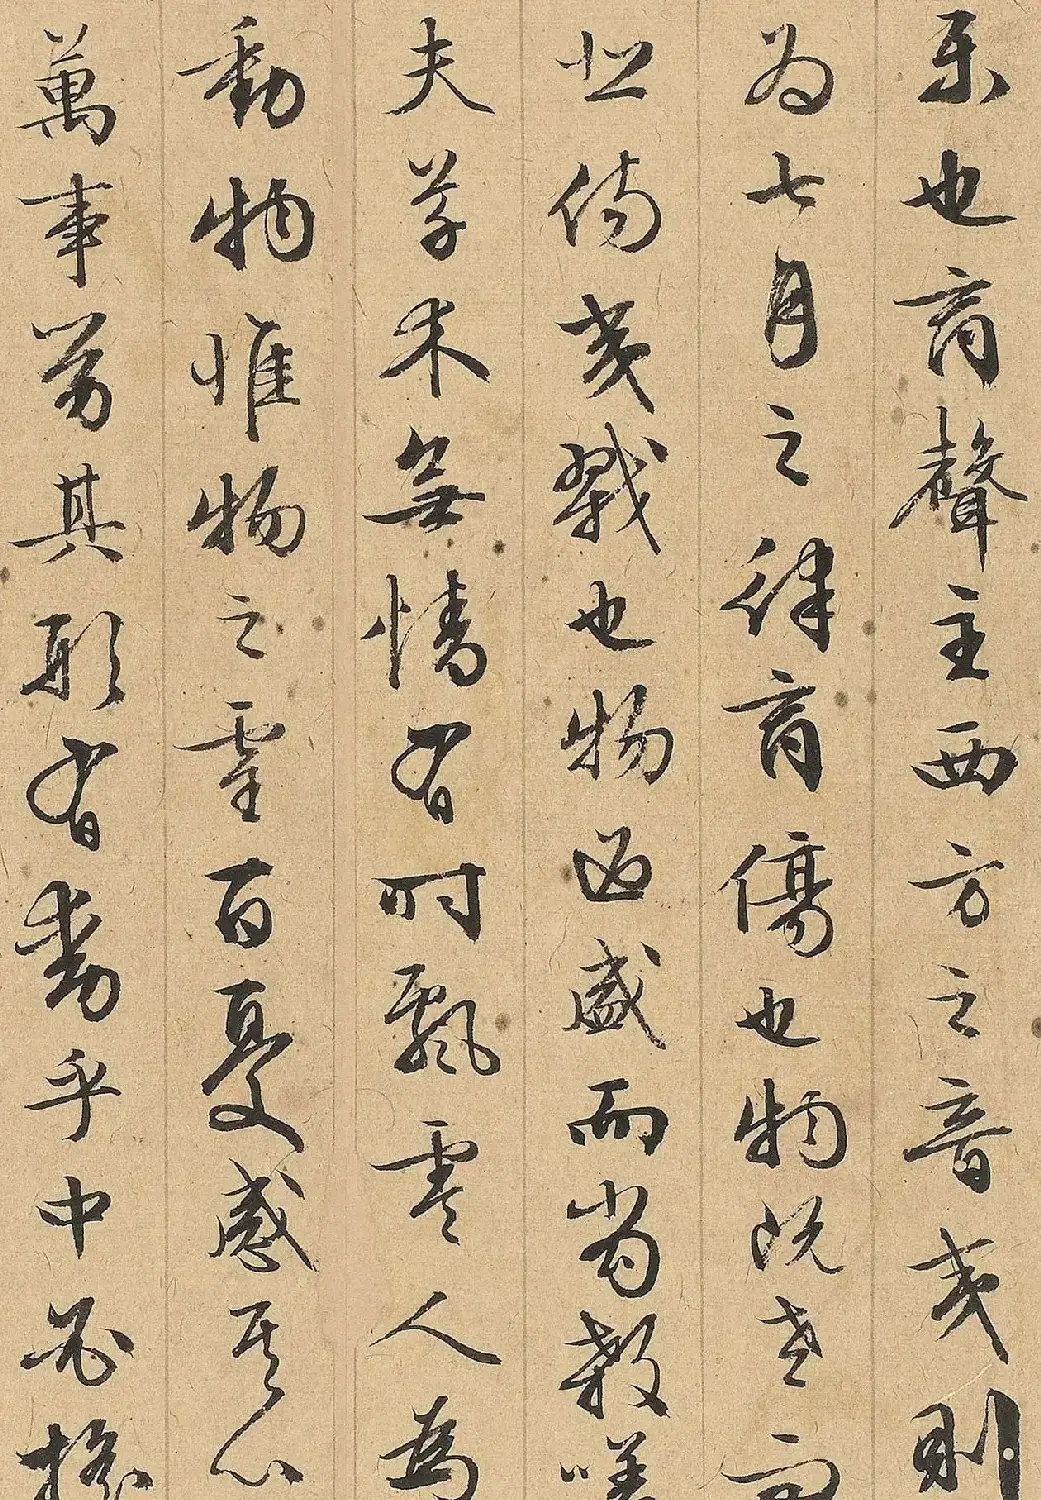 樂也商聲主西方之音夷則
為七月之律商傷也物既老而
悲傷夷戮也物過盛而當殺嗟
夫草木無情有時飄零人為
動物惟物之靈百憂感其心
萬事勞其形有動乎中必搖